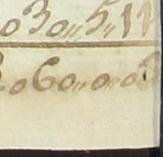 030,,5,,11
060,,0,,0